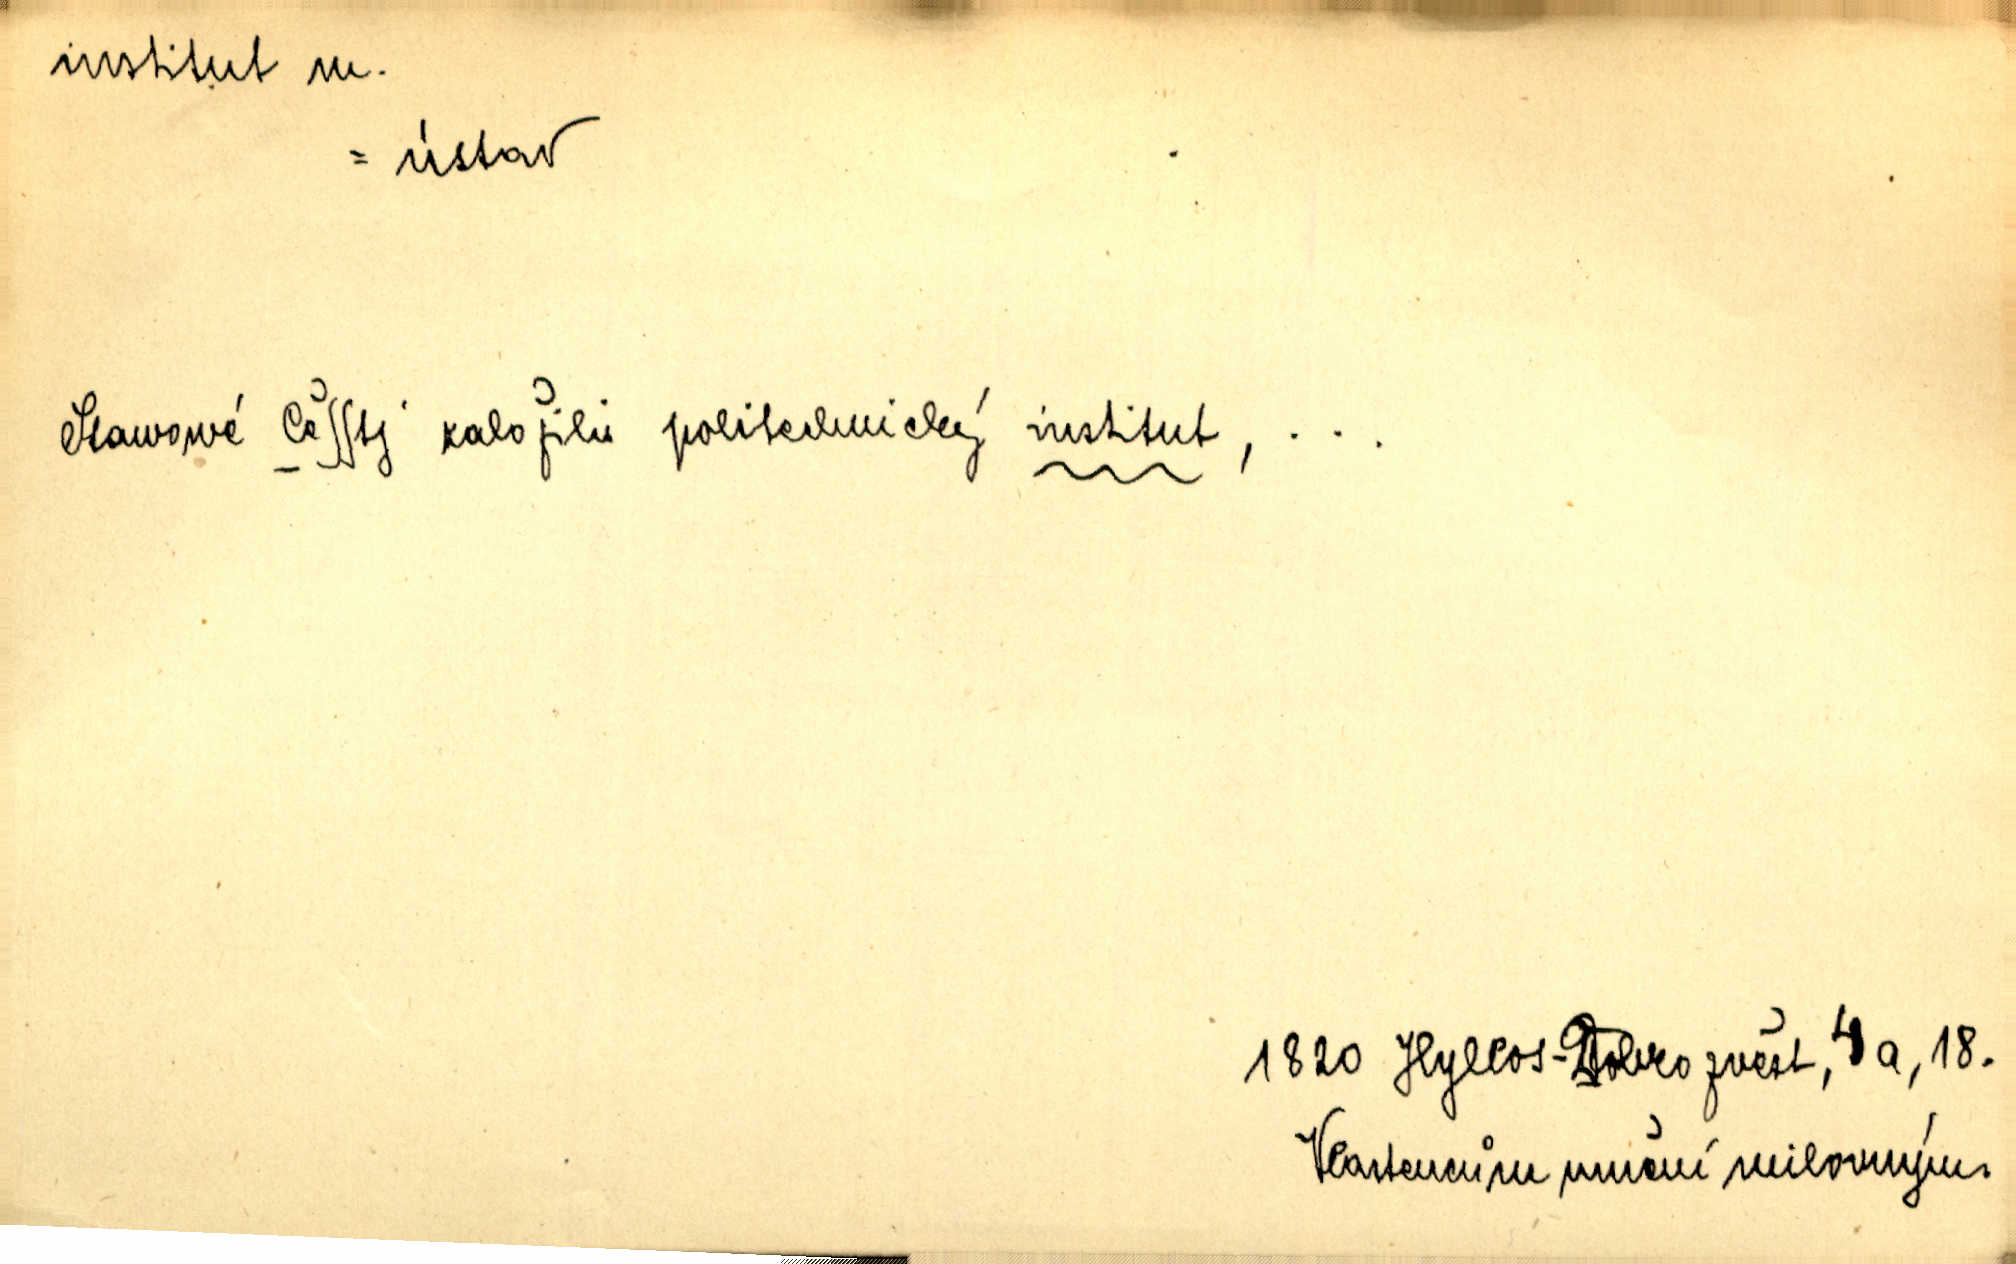 institut m.
= ústav
Stawowé Čefftj založili politechnický institut, . . .
1820 Hyllos-Dobrozvěst, 4a, 18.
Vlastencům umění milovným.